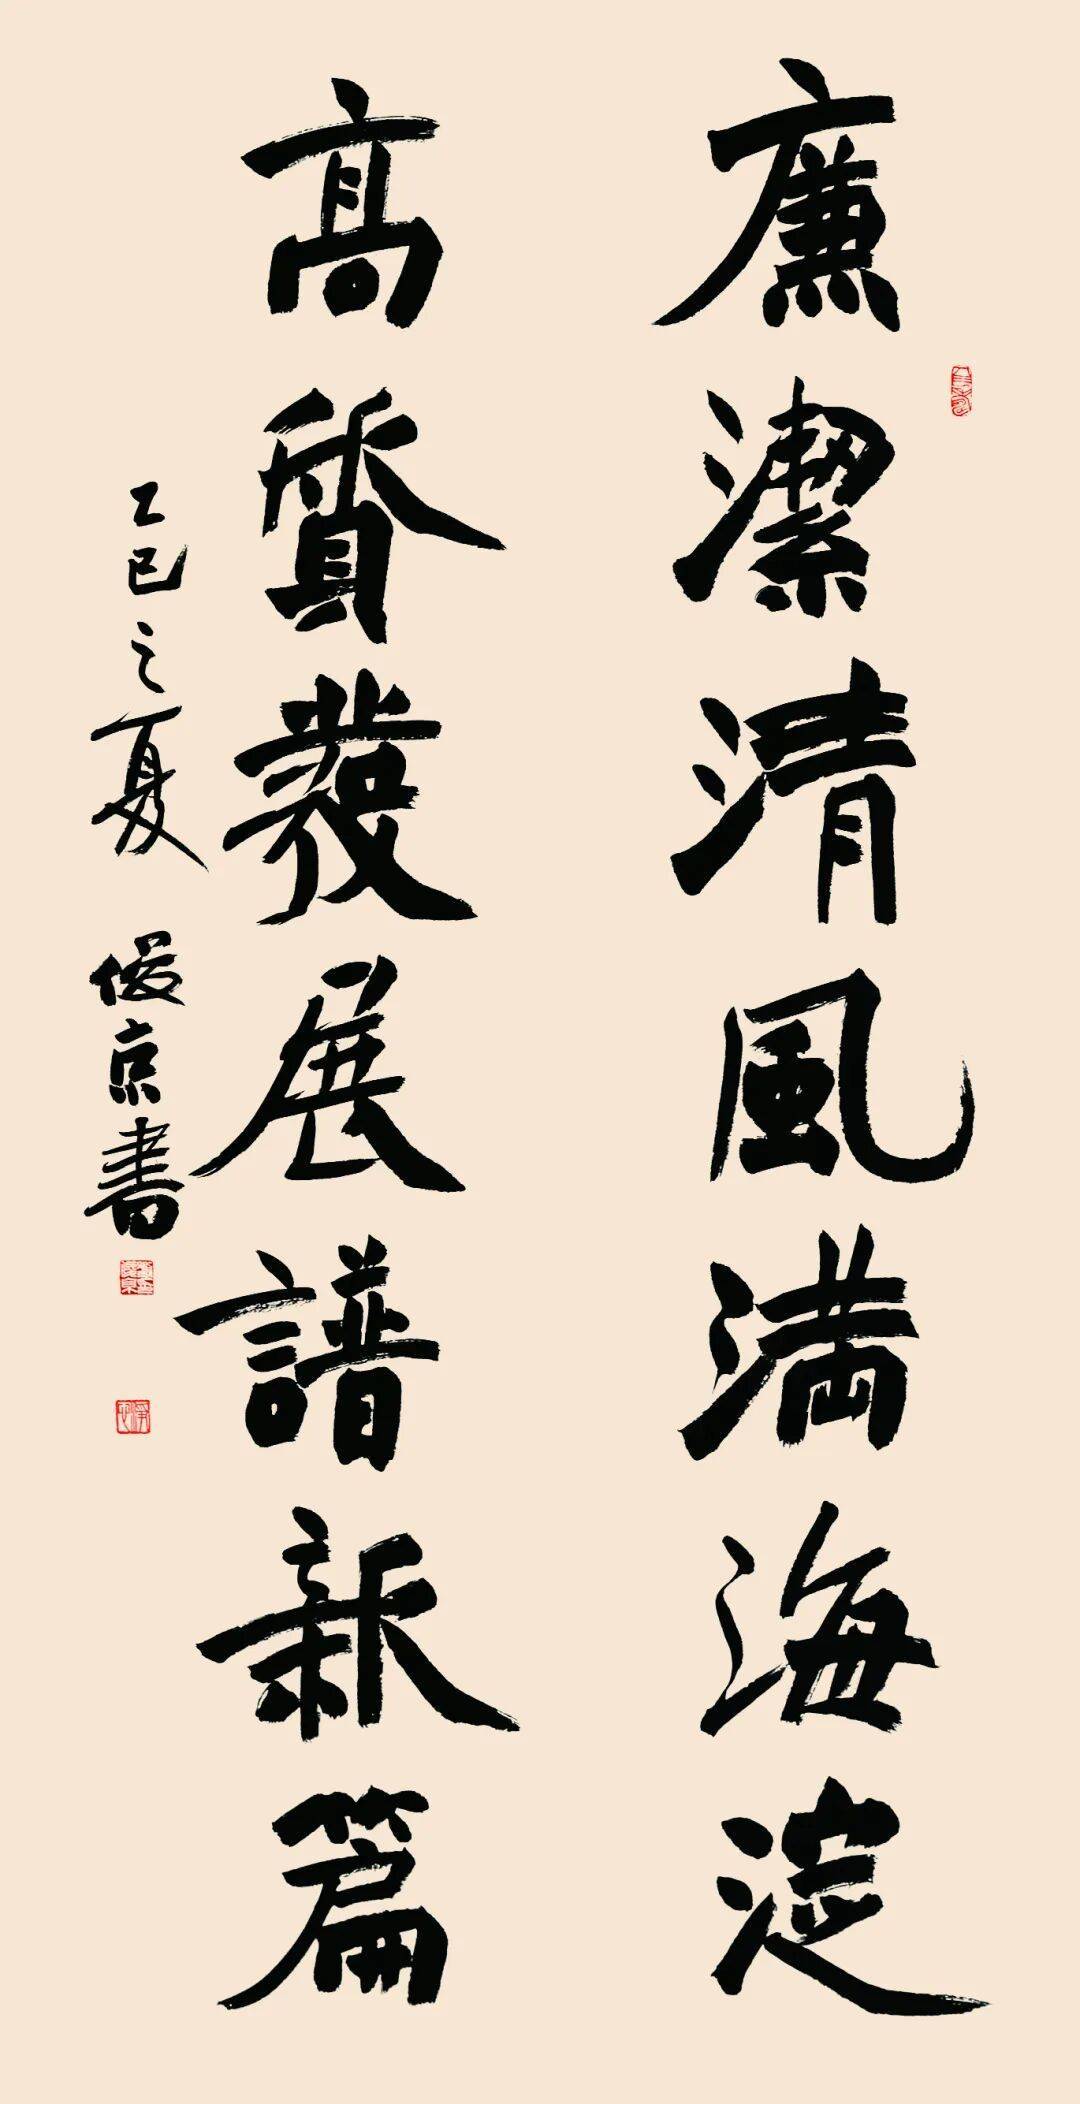 廉潔清風满海淀
髙質發展譜新篇
乙巳之夏 俊京書